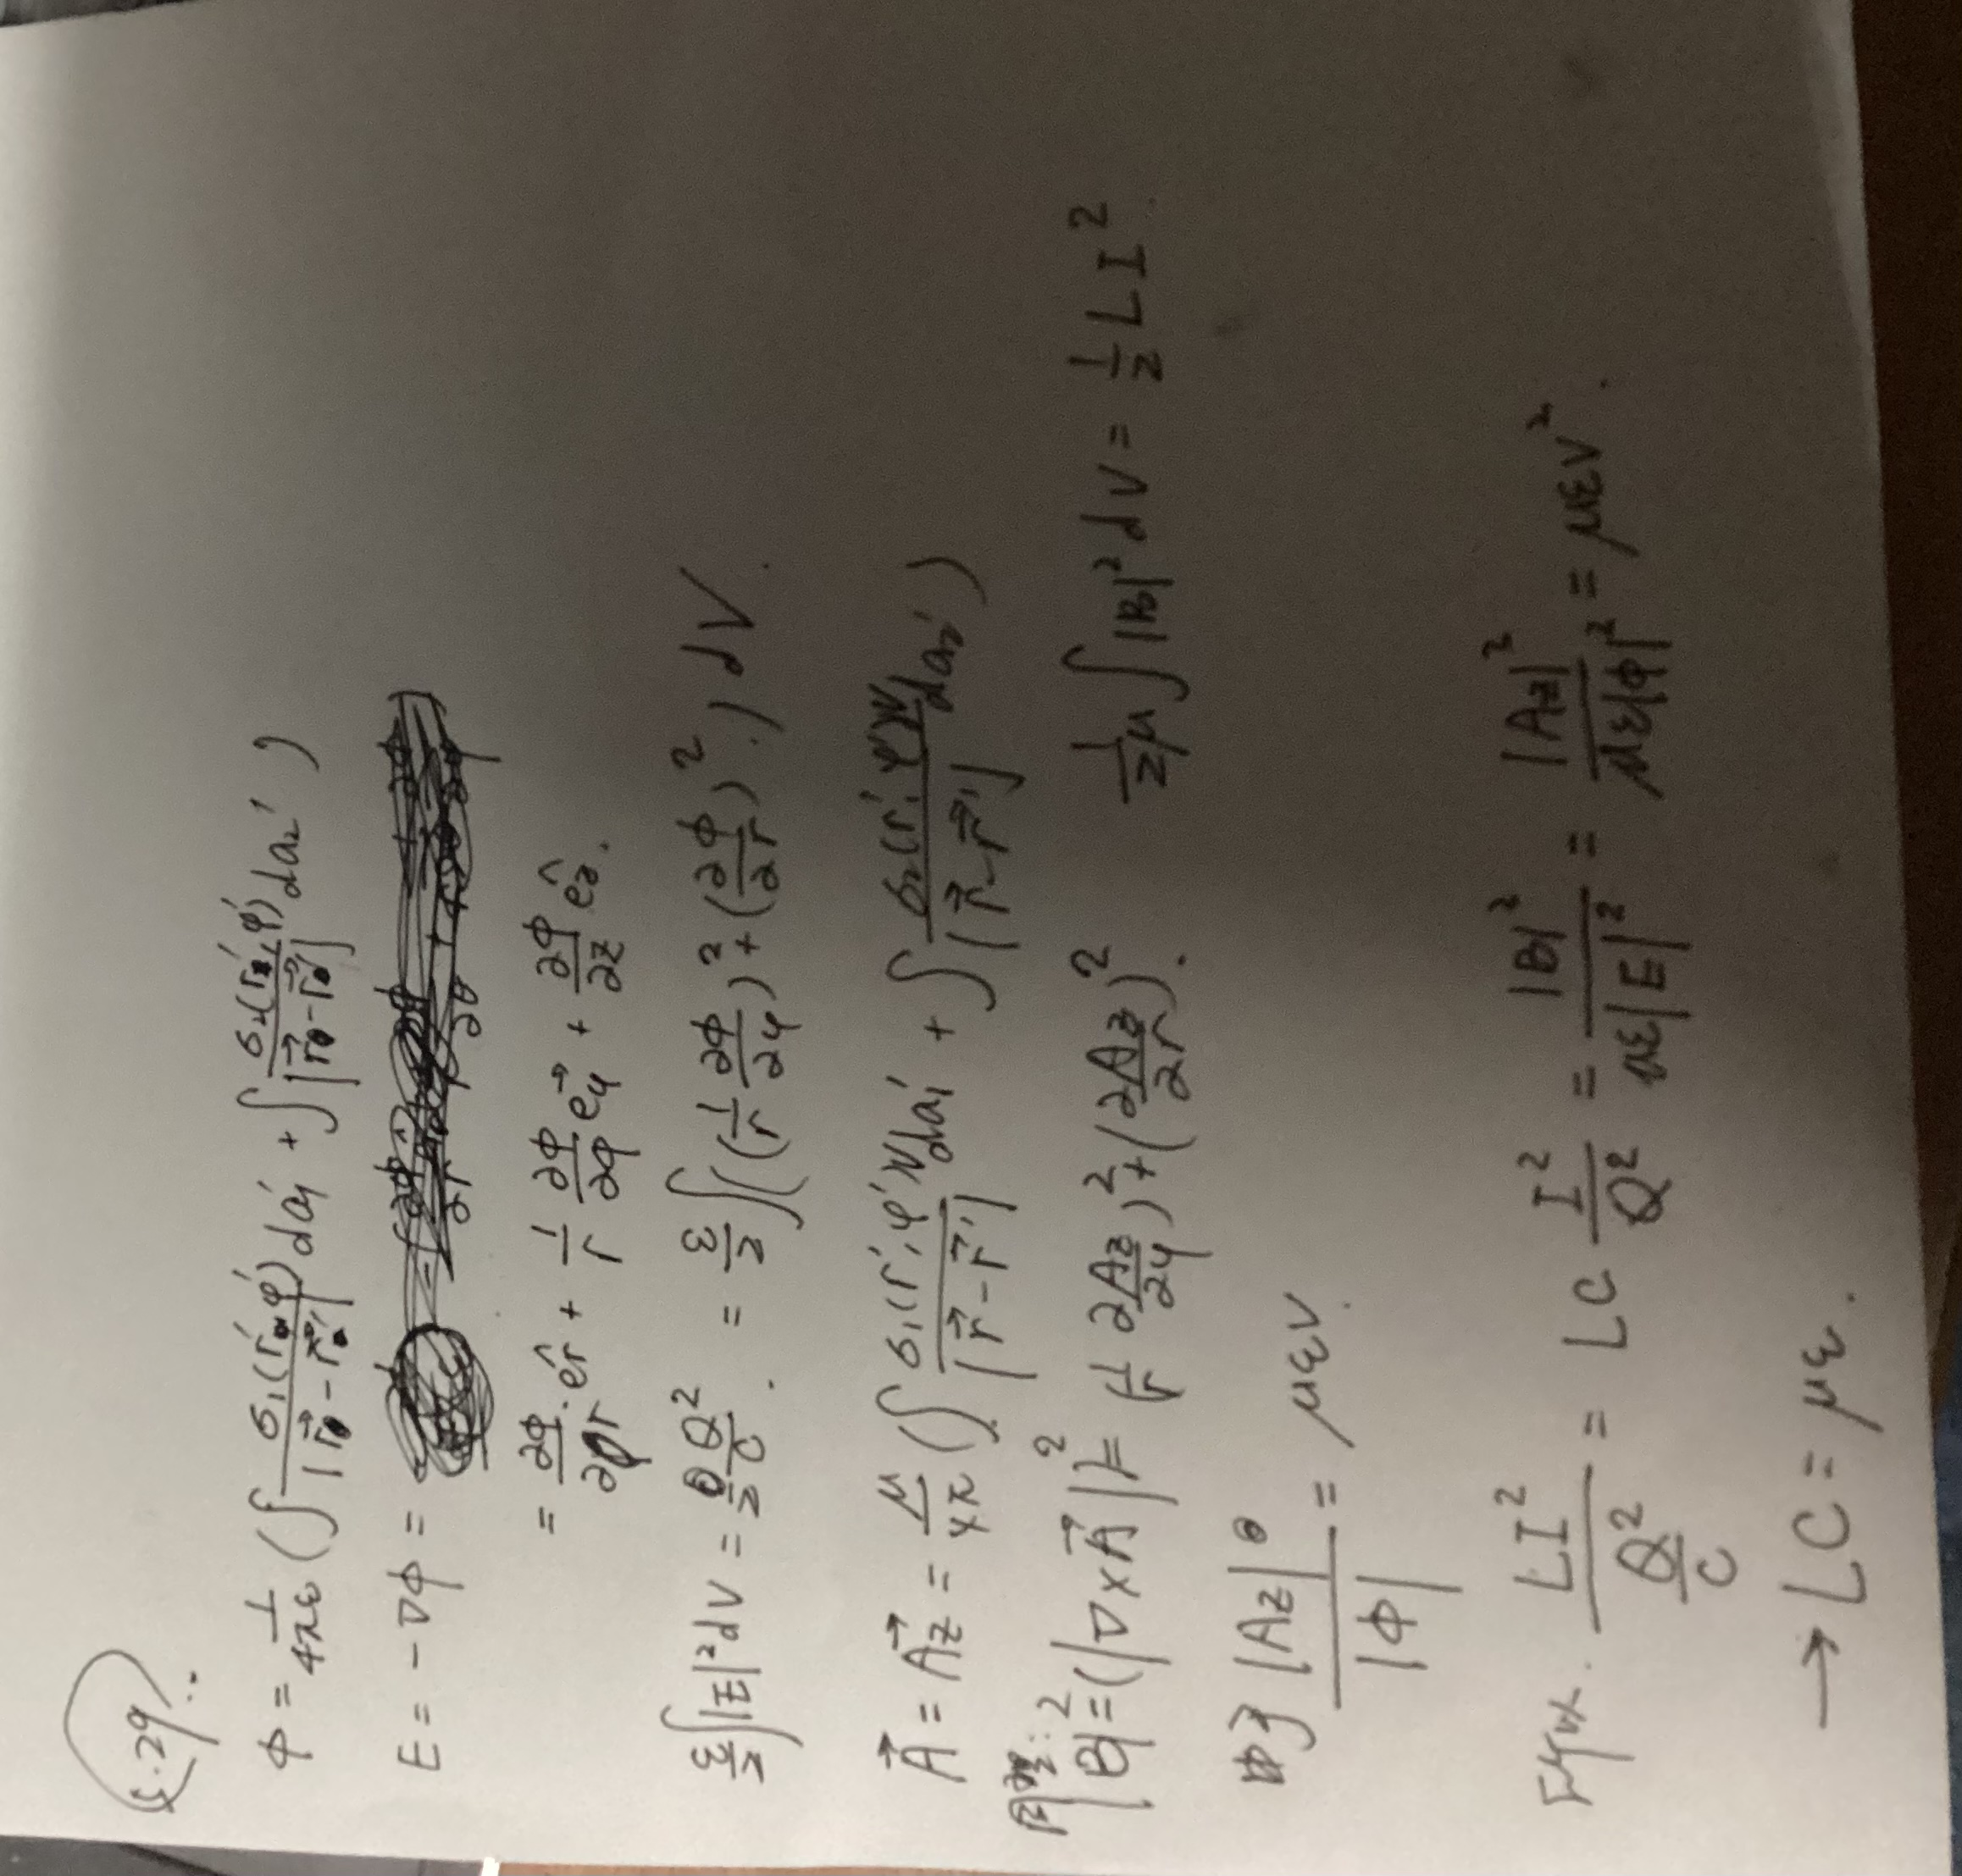 5.29.:
φ = 1/4πε (∫ σ₁(r',φ')/|r⃗ - r⃗'| da₁' + ∫ σ₂(r',φ')/|r⃗ - r⃗'| da₂')
E = -∇φ =
= ∂φ/∂r · êr + 1/r ∂φ/∂φ e⃗φ + ∂φ/∂z êz.
ε/2 ∫|E|²dV = 1/2 Q²/C . = ε/2 ∫((1/r ∂φ/∂φ)² + (∂φ/∂r)².) dV.
A⃗ = A⃗z = μ/4π (∫ σ₁(r',φ')v/|r⃗ - r⃗'| da₁' + ∫ σ₂(r',φ')v/|r⃗ - r⃗'| da₂')
同理:
|B|² = (|∇×A⃗|)² = (1/r ∂Az/∂φ)² + (∂Az/∂r)². 1/2μ ∫|B|²dV = 1/2 LI².
由于 |Az|/|φ| = μεv.
所以. LI²/(Q²/C) = LC I²/Q² = |B|²/με|E|² = |Az|²/με|φ|² = μεv².
→ LC = με.